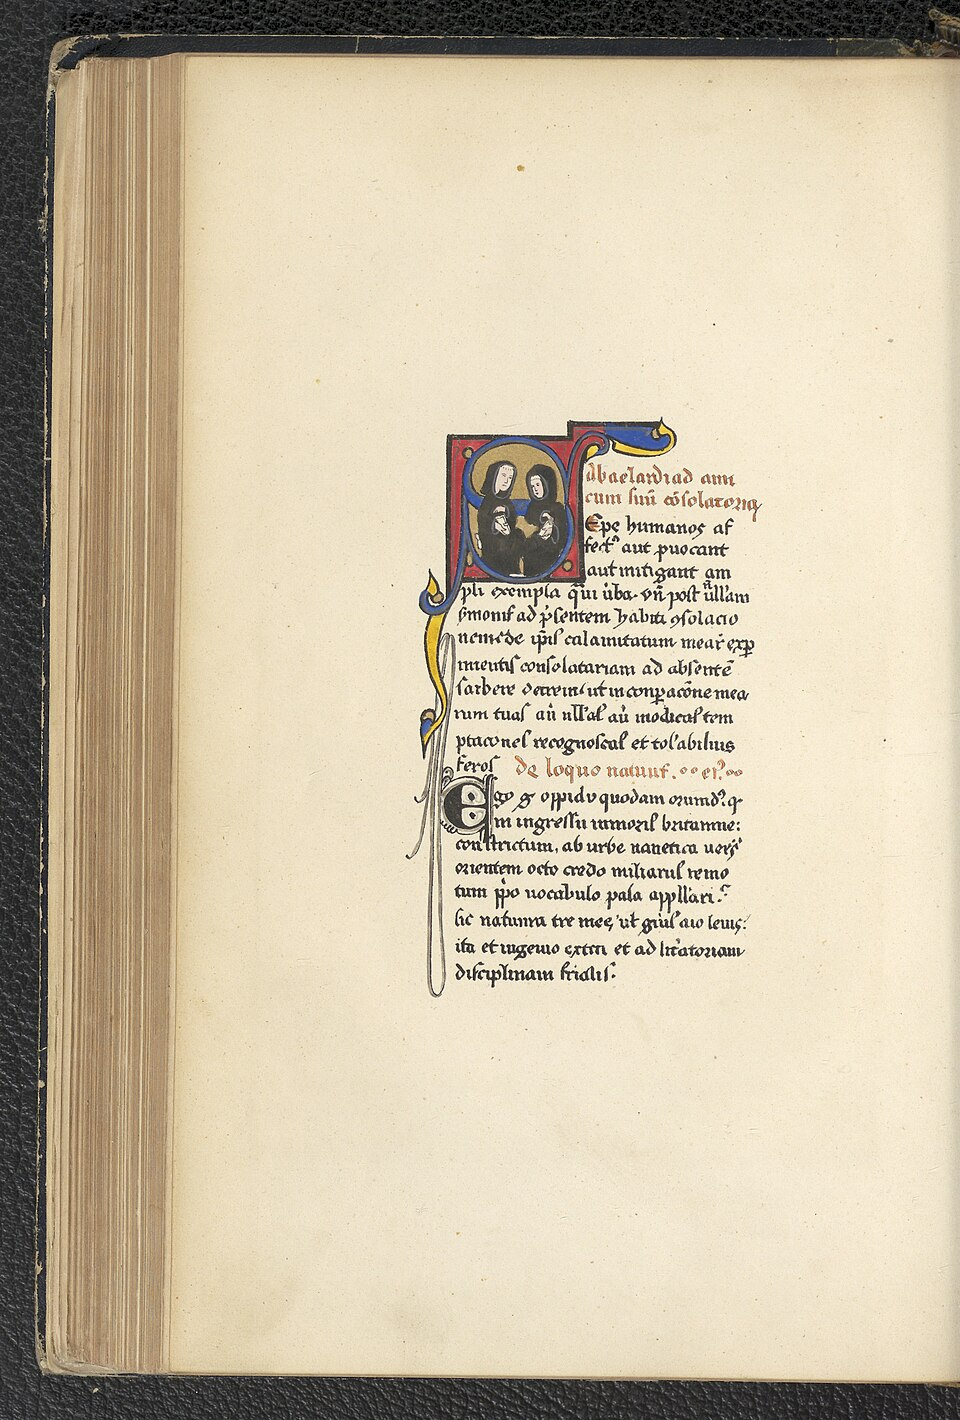 Abaelardi ad ami
cum suū cōsolatoria
Epę humanos af
fectꝰ aut ꝓuocant
aut mitigant am
pli exempla q̄ui ūba. vn̄ post n̄ullam
ẜmonis ad p̄sentem habiti ꝯsolacio
nem de ip̄is calamitatum mear̄ exp
imentis consolatariam ad absentē
scribere decrevi ut in conꝑacōne mea
rum tuas aū nll'as aū modicas tem
ptacōnes recognoscas et tol'abilius
feras de loquo natuuſ. et.
Ego g̉ oppido quodam oriundꝰ q
in ingressu minoris britannie:
constrictum, ab urbe nanetica versꝰ
orientem octo credo miliarus remo
tum ꝓp̄o uocabulo pala appll'ari.
sic natura tre mee, ut gñis aīo levis:
ita et ingenio extiti et ad litr̄atoriam
disciplinam